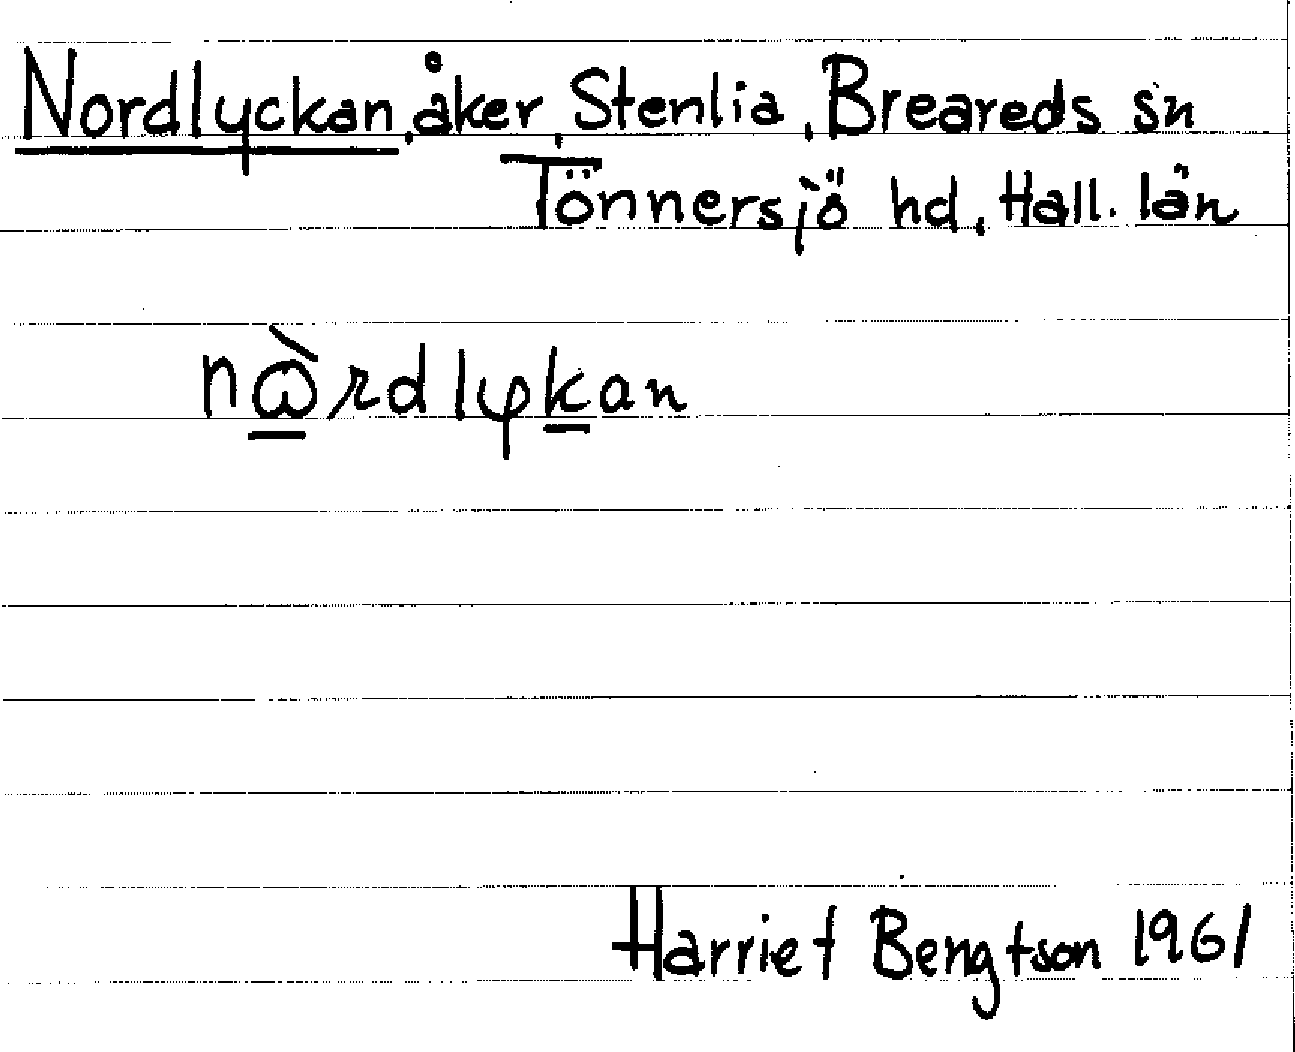 Nordlyckan, åker, Stenlia, Breareds sn
Tönnersjö hd, Hall. län
nὼrdlykan
Harriet Bengtson 1961